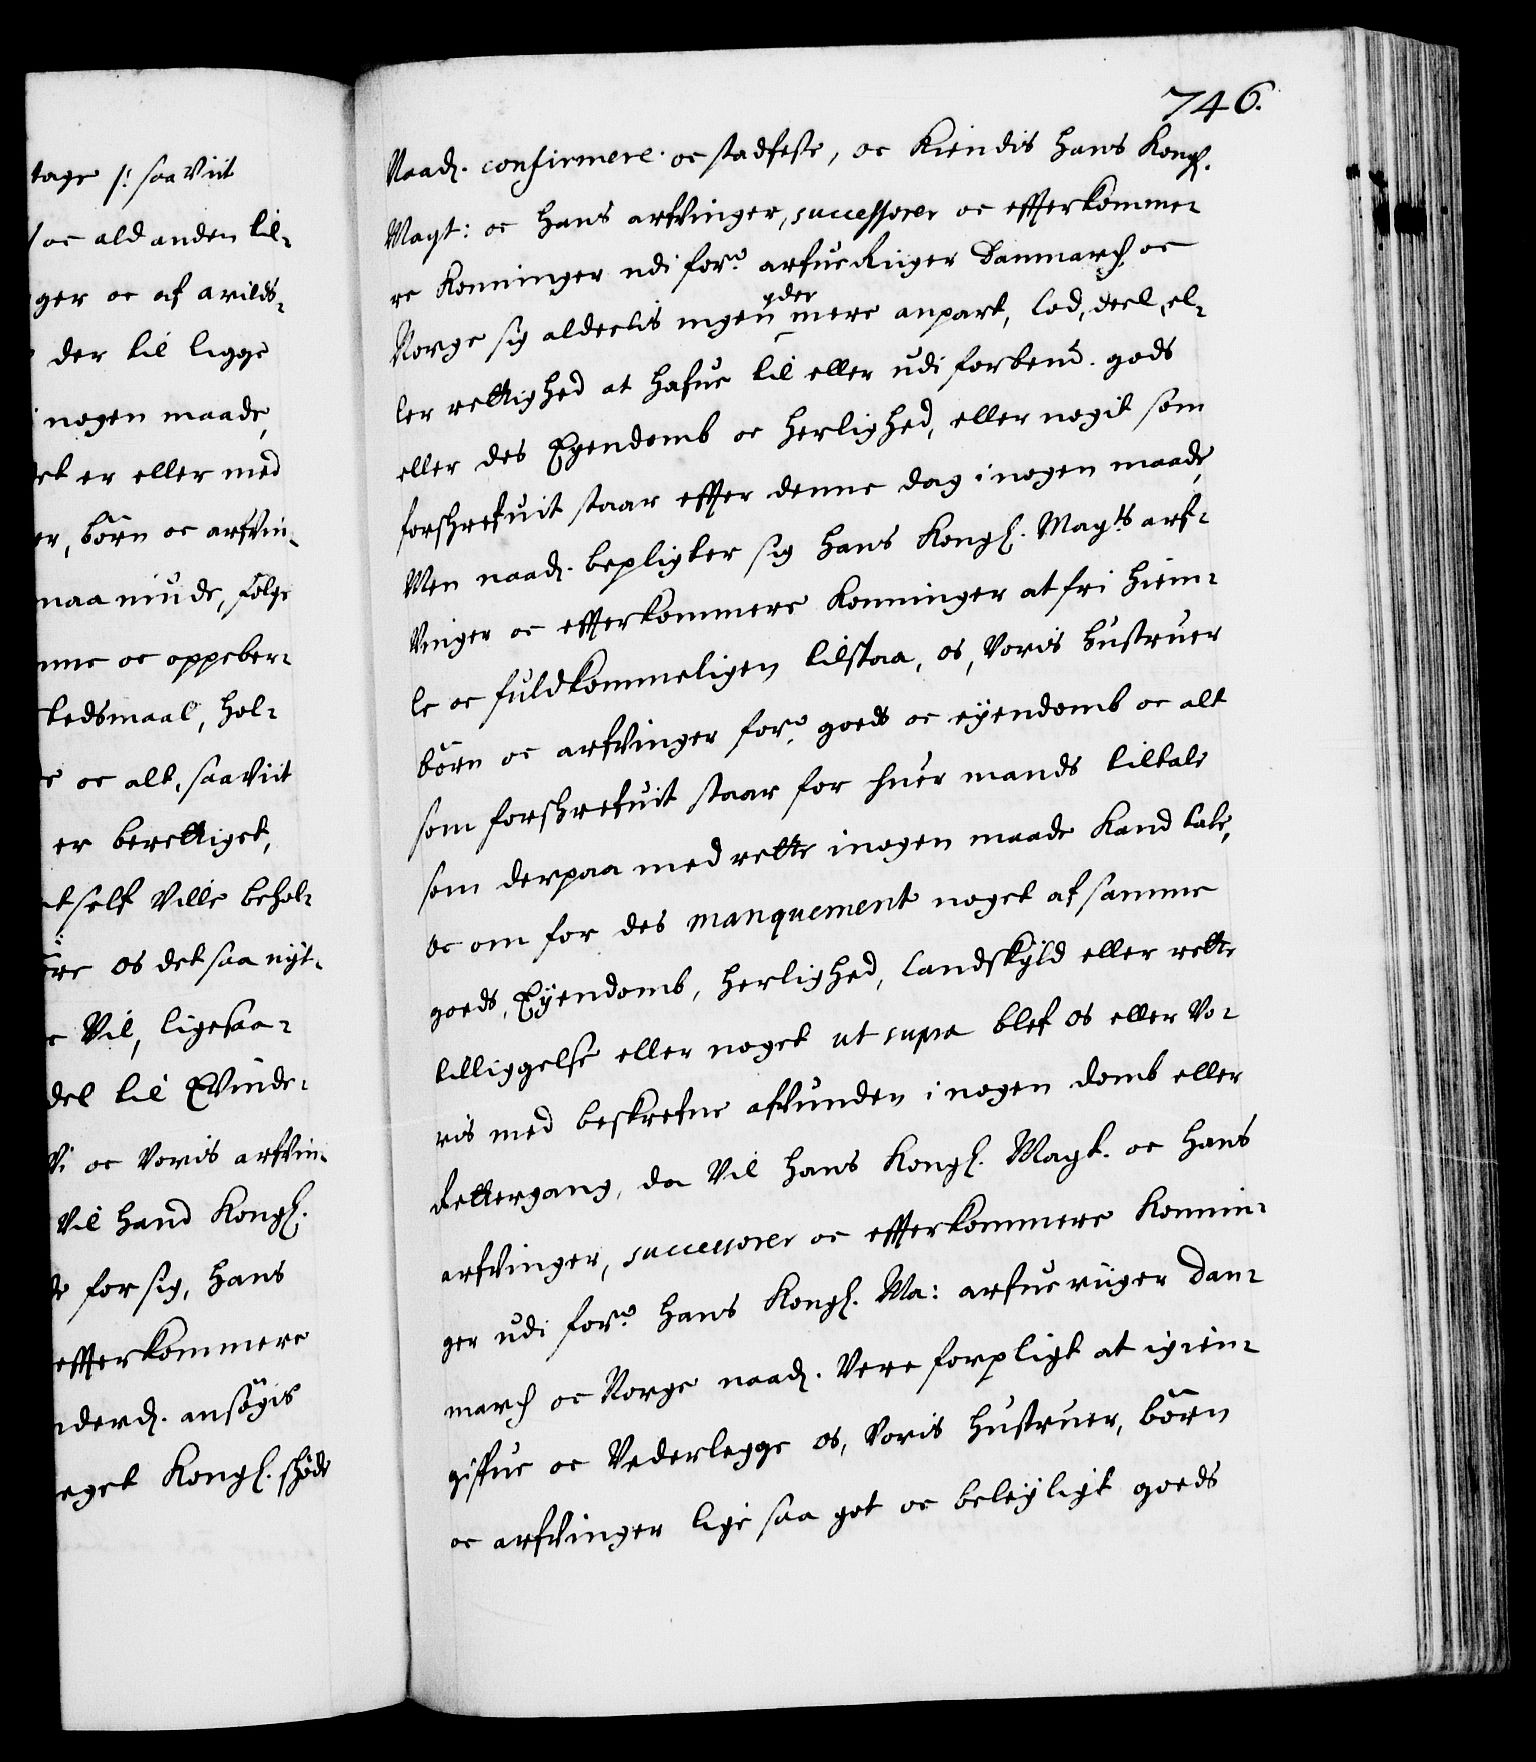 tage /: saa viit
/ oc ald anden til-
ger oc af arilds-
der til ligge
nogen maade,
et er eller med
er, børn oc arfvin-
maa niude, følge
nne oc oppeber-
tedsmaal, hol-
e oc alt, saa viit
er berettiget,
tself ville behol-
øre os det saa nyt-
e vil, ligesaa-
del til Evinde-
vi oc voris arfvin-
vil hand Kongl.
for sig, hans
efterkommere
nderd. ansøgis
eget Kongl. skiøde
746.
Naad. confirmere oc stadfeste, oc kiendis hans Kongl.
Magt: oc hans arfvinger, successorer oc efterkomme-
re Konninger udi for.ne arfue Riiger Danmarch oc
Norge sig aldeelis ingen yder mere anpart, lod, deel, el-
ler rettighed at hafue til eller udi forben.te gods
eller des Eyendomb oc herlighed, eller nogit som
forschrefuit staar effter denne dag i nogen maade,
Men naad. bepligter sig hans Kongl. Magts arf-
vinger oc effterkommere Konninger at fri hiem-
le oc fuldkommeligen tilstaa, os, voris hustruer
børn oc arfvinger for.ne goeds oc eyendomb oc alt
som forschrefuit staar for huer mands tiltale
som derpaa med rette i nogen maade kand tale,
oc om for des manquement noget af samme
goeds, Eyendomb, herlighed, landskyld eller rette
tilliggelse eller noget ut supra blef os eller vo-
ris med beskrefne afvunden i nogen domb eller
Rettergang, da vil hans Kongl. Magt. oc hans
arfvinger, successorer oc effterkommere Konnin-
ger udi for.ne hans Kongl. Ma: arfue riiger Dan-
march oc Norge naad. vere forpligt at igien-
giffue oc vederlegge os, voris hustruer, børn
oc arfvinger lige saa got oc beleyligt goeds